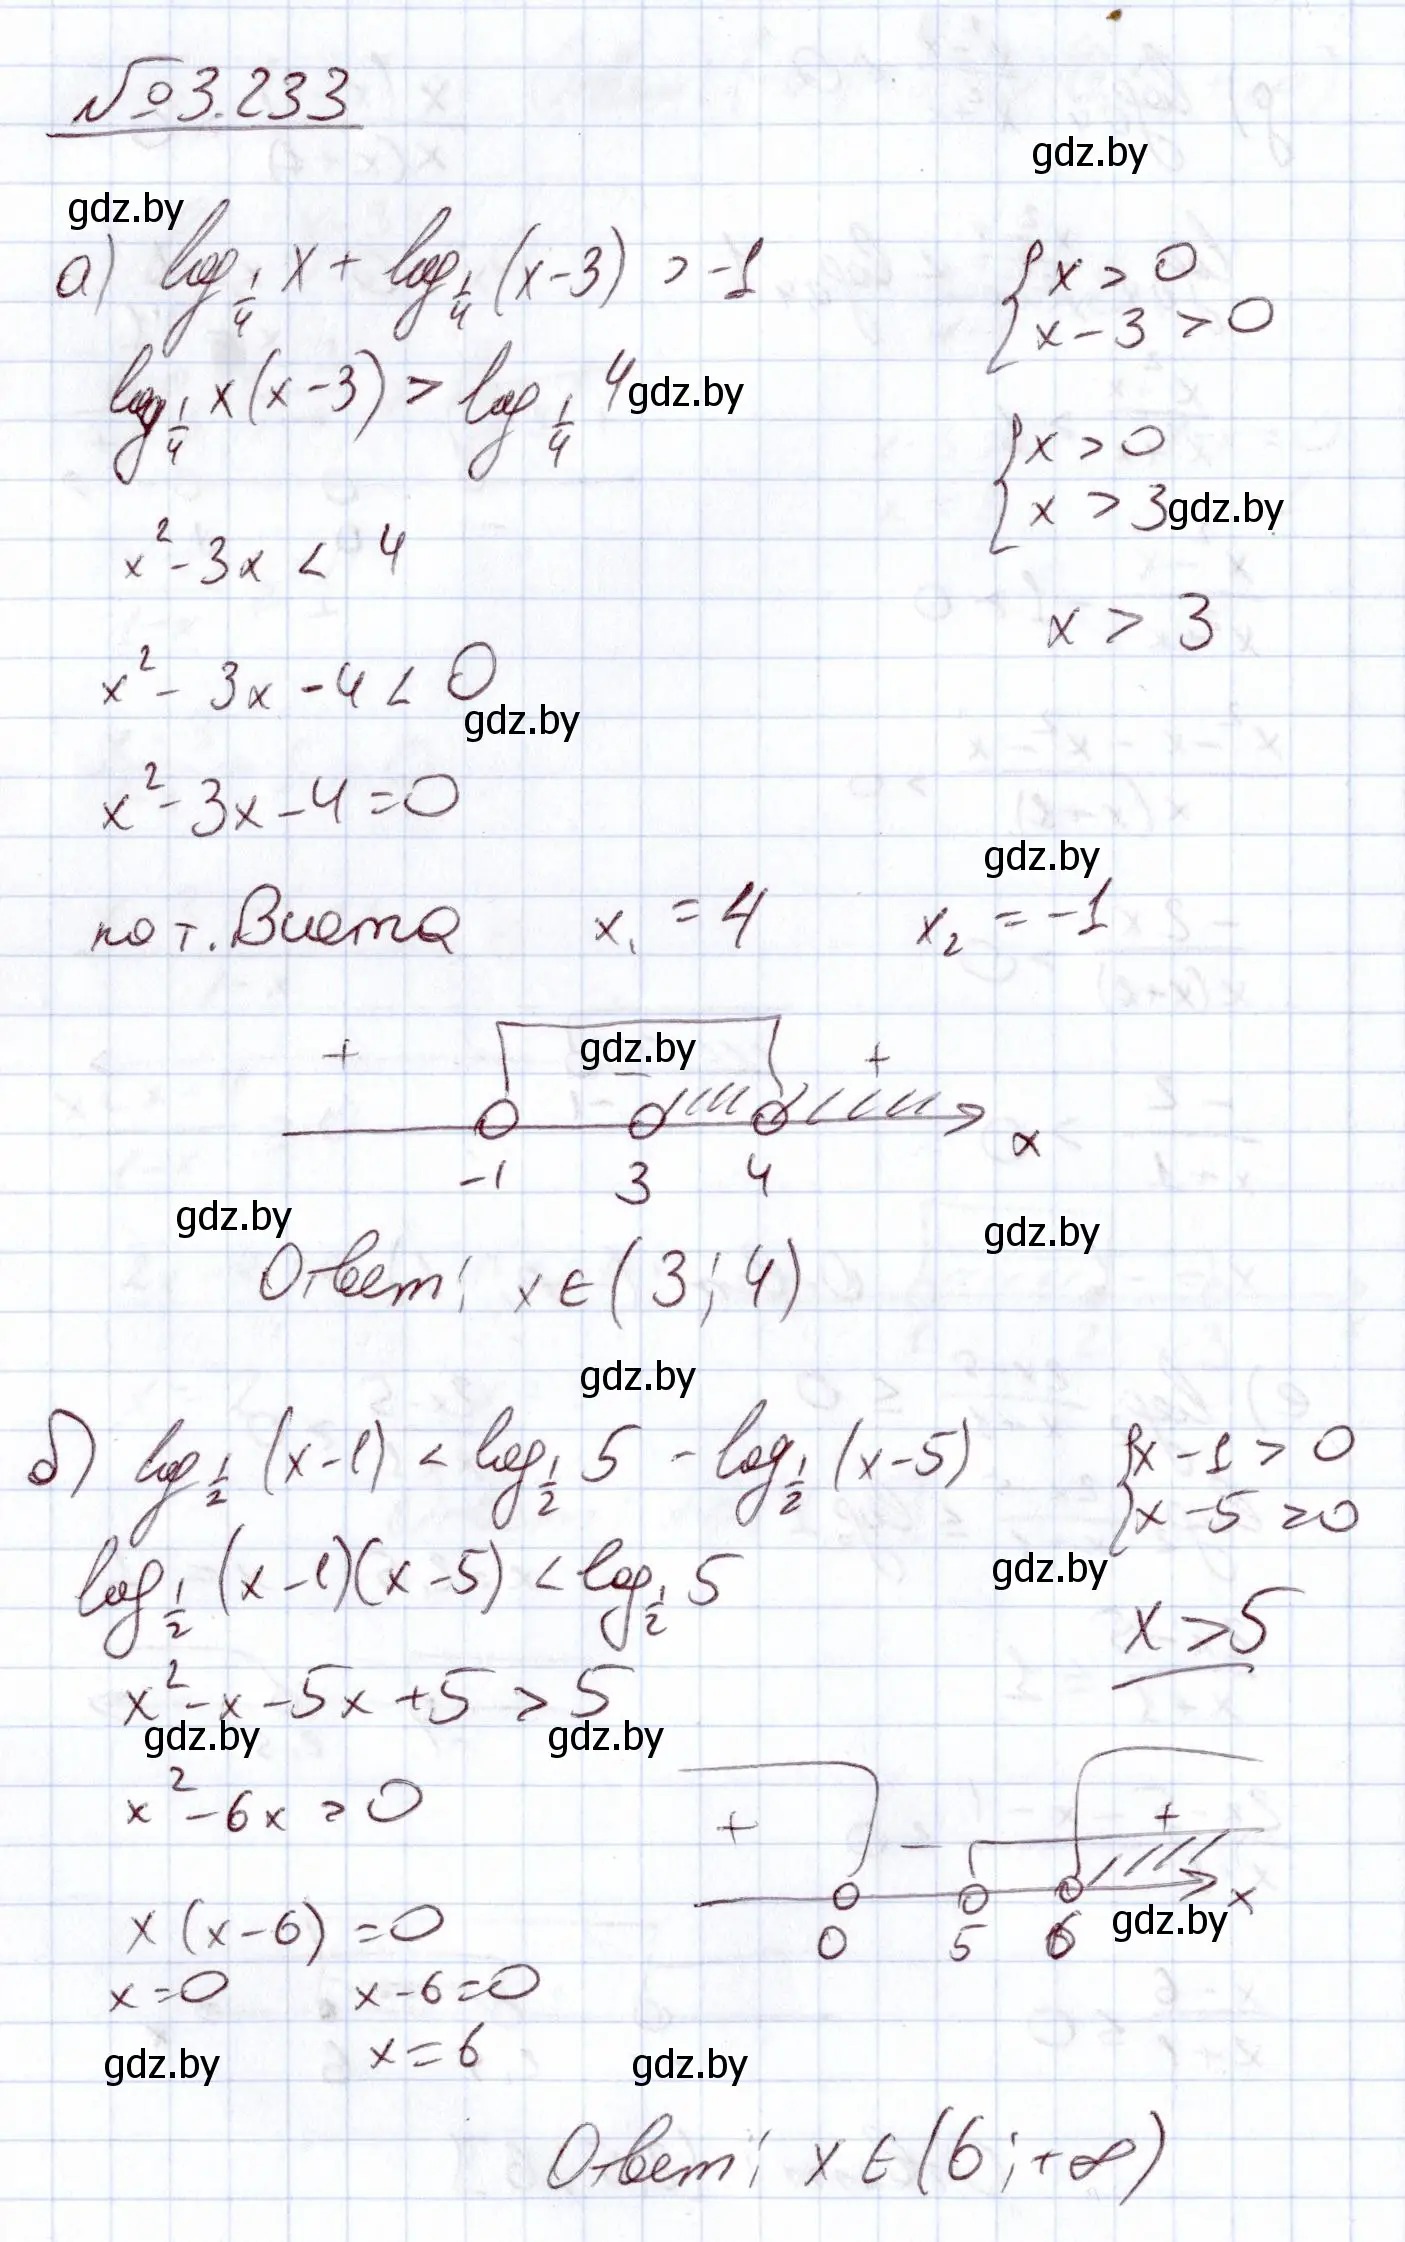 №3.233
gdz.by
gdz.by
а) log_{1/4} x + log_{1/4} (x-3) > -1
{x > 0
{x-3 > 0
log_{1/4} x(x-3) > log_{1/4} 4
gdz.by
{x > 0
{x > 3
gdz.by
x² - 3x < 4
x > 3
x² - 3x - 4 < 0
gdz.by
x² - 3x - 4 = 0
gdz.by
по т. Виета x₁ = 4 x₂ = -1
gdz.by
+ − +
-1 3 4 x
gdz.by
gdz.by
Ответ: x ∈ (3; 4)
gdz.by
б) log_{1/2} (x-1) < log_{1/2} 5 - log_{1/2} (x-5)
{x - 1 > 0
{x - 5 > 0
log_{1/2} (x-1)(x-5) < log_{1/2} 5
gdz.by
x > 5
x² - x - 5x + 5 > 5
gdz.by
gdz.by
x² - 6x > 0
+ − +
0 5 6 x
gdz.by
x(x-6) = 0
x = 0 x - 6 = 0
x = 6
gdz.by
gdz.by
Ответ: x ∈ (6; +∞)